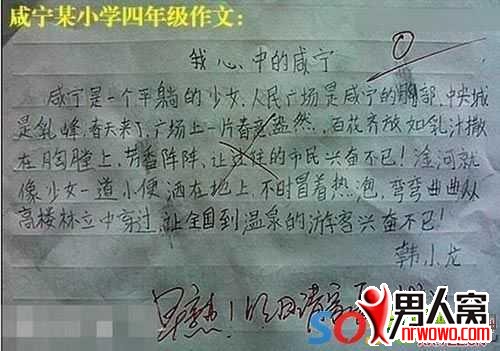 咸宁某小学四年级作文：
0
我心中的咸宁
咸宁是一个平躺的少女，人民广场是咸宁的胸部，中央城
是乳峰，春天来了，广场上一片春意盎然，百花齐放如乳汁撒
在胸膛上，芳香阵阵，让过往的市民兴奋不已！淦河就
像少女一道小便洒在地上，不时冒着热泡，弯弯曲曲从
高楼林立中穿过，让全国到温泉的游客兴奋不已！
韩小龙
明日请家
SO
男人窝
nrwowo.com